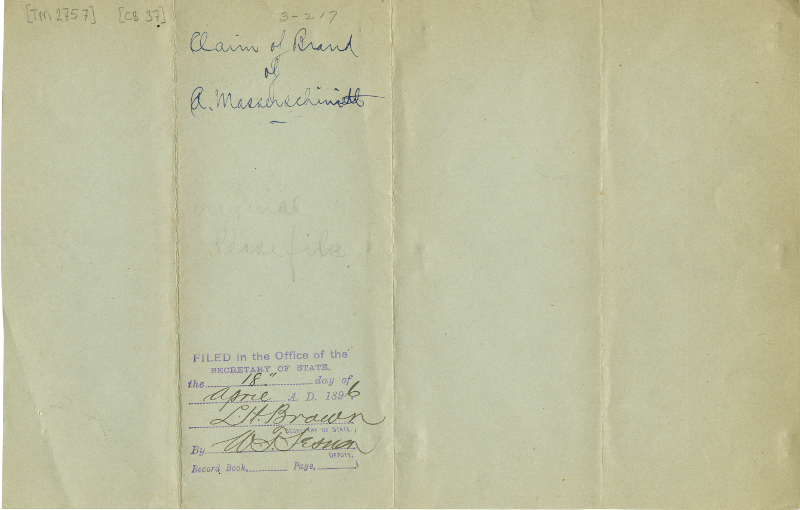 [TM 2757] [CB 37]
3-217
Claim of Brand
of
A. Masserschmidt
original
Please file
FILED in the Office of the
SECRETARY OF STATE.
the 18" day of
April A. D. 1896
L.H. Brown
SECRETARY OF STATE.
By W.T.
DEPUTY.
Record Book, Page,